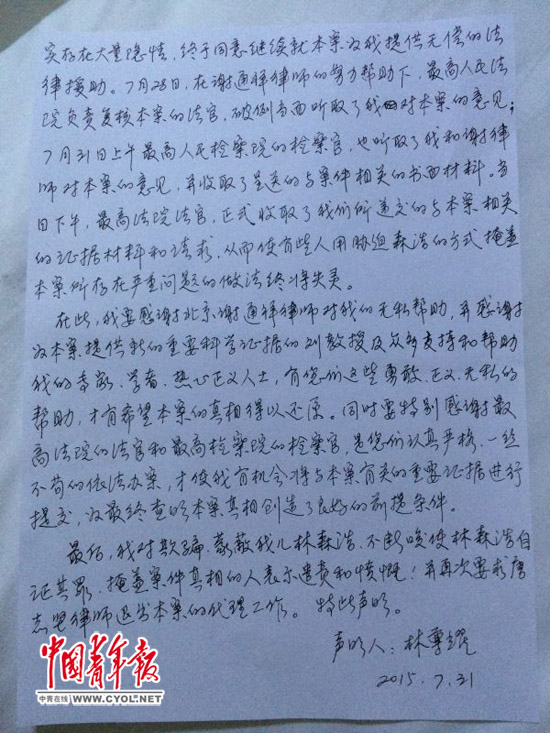 实存在大量隐情，终于同意继续就本案为我提供无偿的法
律援助。7月28日，在谢通祥律师的努力帮助下，最高人民法
院负责复核本案的法官，破例当面听取了我对本案的意见；
7月31日上午最高人民检察院的检察官，也听取了我和谢律
师对本案的意见，并收取了呈送的与案件相关的书面材料。当
日下午，最高法院法官，正式收取了我们所递交的与本案相关
的证据材料和请求，从而使有些人用胁迫森浩的方式掩盖
本案所存在严重问题的做法终将失灵。
在此，我要感谢北京谢通祥律师对我的无私帮助，并感谢
为本案提供新的重要科学证据的刘教授及众多支持和帮助
我的专家、学者、热心正义人士，有您们这些勇敢、正义、无私的
帮助，才有希望本案的真相得以还原。同时要特别感谢最
高法院的法官和最高检察院的检察官，是您们认真严格、一丝
不苟的依法办案，才使我有机会将与本案有关的重要证据进行
提交，为最终查明本案真相创造了良好的前提条件。
最后，我对欺骗、蒙蔽我儿林森浩，不断唆使林森浩自
证其罪，掩盖案件真相的人表示谴责和愤慨！并再次要求唐
志坚律师退出本案的代理工作。特此声明。
声明人：林尊耀
2015.7.31
中国青年报
中青在线 WWW.CYOL.NET